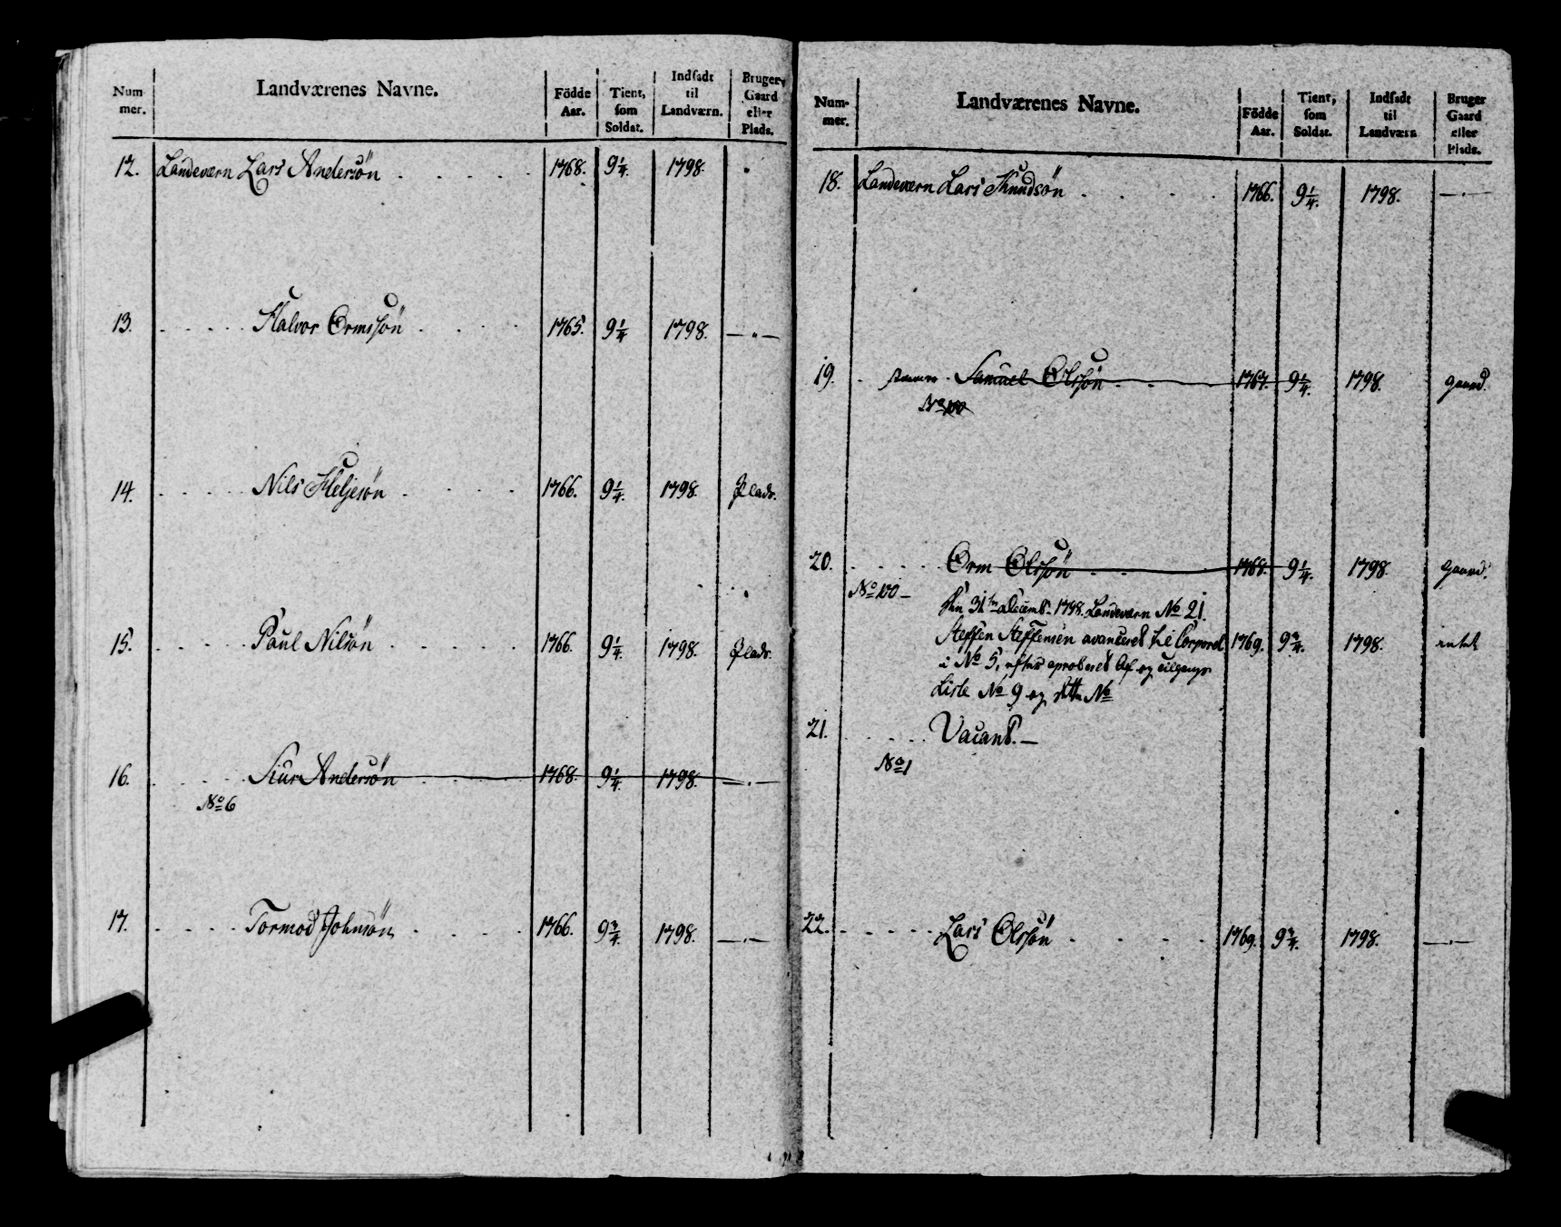 Num-
mer.
Landværenes Navne.
Födde
Aar.
Tient,
som
Soldat.
Indsadt
til
Landværn.
Bruger
Gaard
eller
Plads.
12. Landeværn Lars Andersön . . . . . 1768. 9 1/4. 1798. .
13. . . . . . Halvor Ormssön . . . . 1765. 9 1/4 1798. — . —
14. . . . . . Nils Heljesön . . . . 1766. 9 1/4. 1798. Plads.
15. . . . . . Paul Nilsön . . . . . 1766. 9 1/4. 1798. Plads.
16. . . . . Siur Andersön 1768. 9 1/4. 1798. — . —
No 6
17. . . . . . Tormod Johnsön . . . . . 1766. 9 3/4. 1798. — . —
Num-
mer.
Landværenes Navne.
Födde
Aar.
Tient,
som
Soldat.
Indsadt
til
Landværn
Bruger
Gaard
eller
Plads.
18. Landeværn Lars Knudsön . . . . 1766. 9 1/4. 1798. — . —
19. . Samuel Olssön . . 1767. 9 1/4. 1798. Gaard.
No 100
20. . . . . . Orm Olssön . . 1768. 9 1/4. 1798. Gaard.
No 100 —
Den 31te Decemb. 1798. Landeværn No 21.
Steffen Steffensen avanceret til Corporal 1769. 9 3/4. 1798. intet
i No 5, efter aproberet Af og tilgangs
Liste No 9 og dette No
21. . . . . . Vacant. —
No 1
22. . . . . . Lars Olssön . . . . 1769. 9 3/4. 1798. — . —